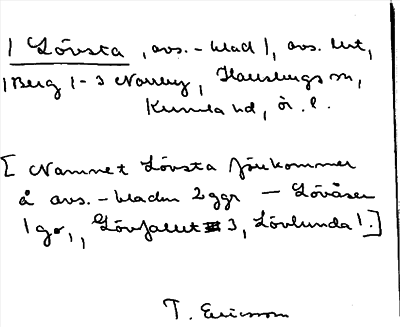 1 Lövsta, avs.-blad 1, avs. lut,
1 Berg 1-3 Norrby, Hausbergs sn,
Kumla hd, ör. l.
[Namnet Lövsta förekommer
å avs.-bladen 2 ggr — Lövåsen
1 gg, Lövfallet 3, Lövlunda 1.]
T. Ericsson